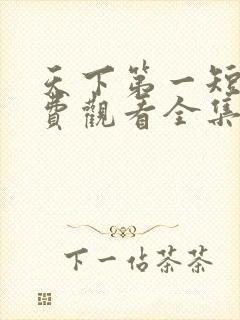 天下第一短
費觀看全集
下一佔茶茶